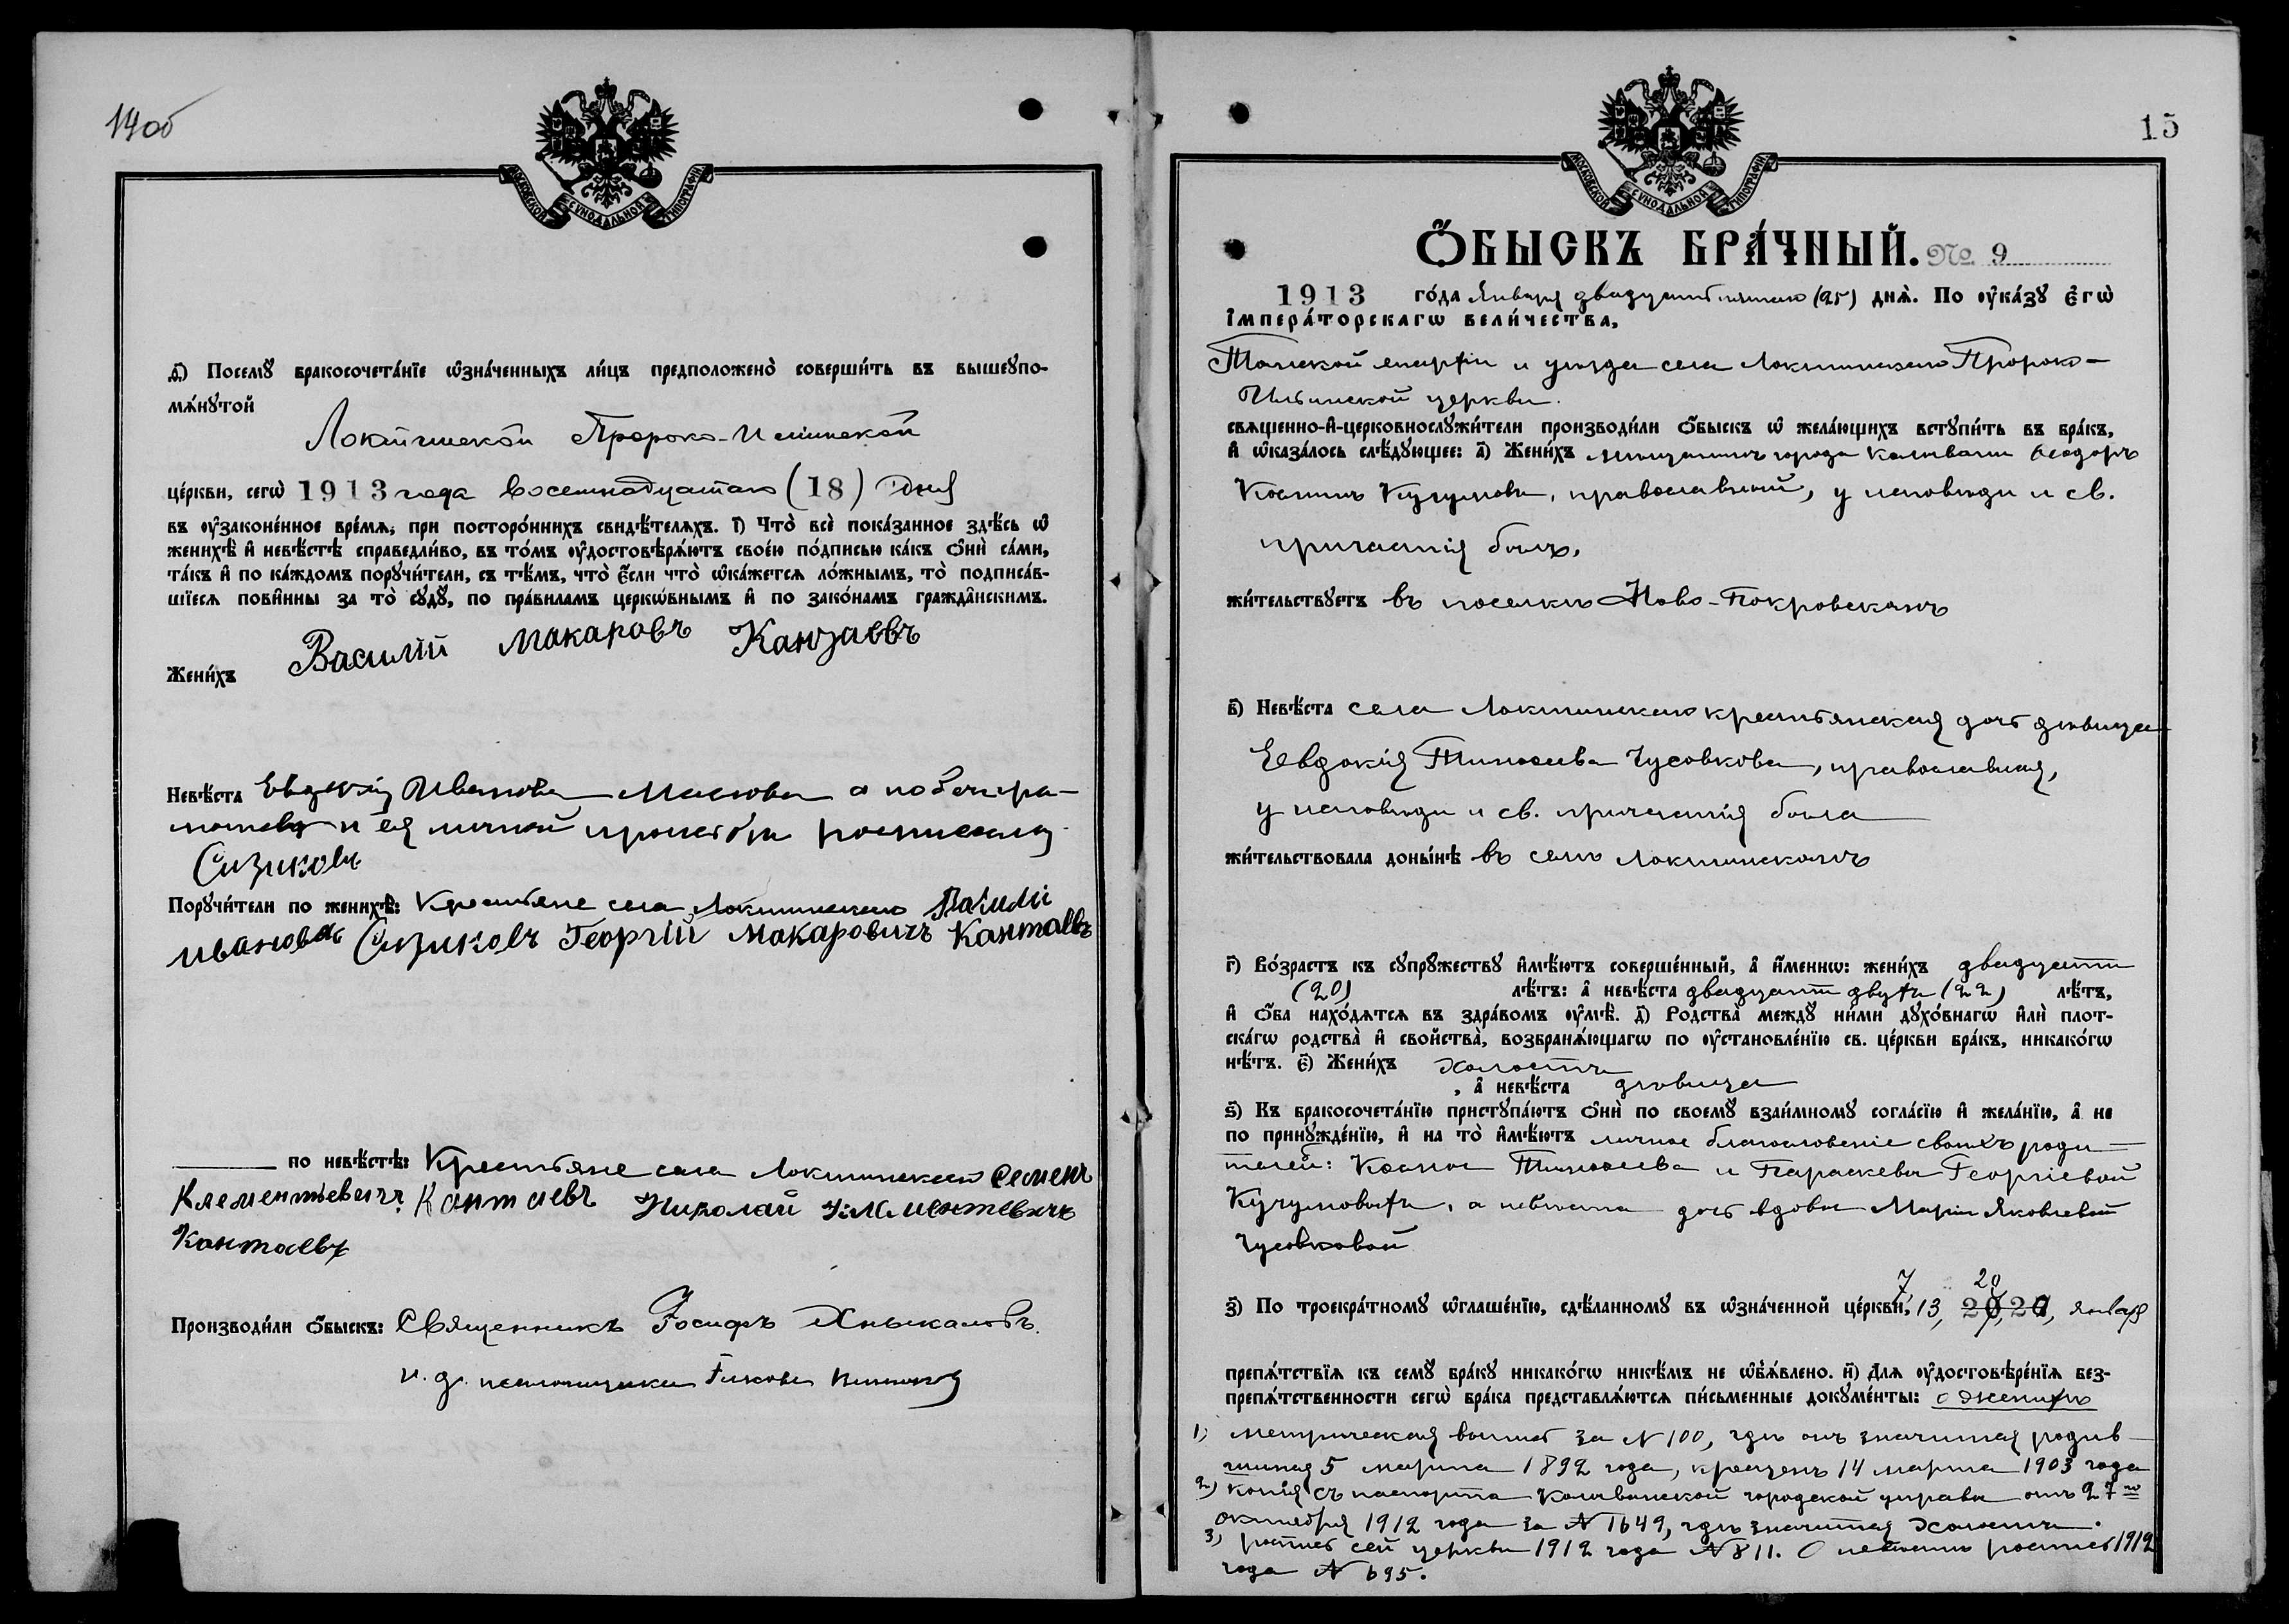 14об
МОСКОВСКОЙ СѴНОДАЛЬНОЙ ТИПОГРАФІИ
д҃) Посемꙋ̀ бракосочета́нїе ѡ҆зна́ченныхъ ли́цъ предположено̀ соверши́ть въ вышеꙋпо-
мѧ́нꙋтой
Локтинской Пророко-Ильинской
це́ркви, сегѡ̀ 1913 года восемнадцатаго (18) дня
въ ᲂу҆зако́ненное вре́мѧ, при посторо́ннихъ свидѣ́телѧхъ. і҃) Что̀ всѐ пока́занное здѣ́сь ѡ҆
женихѣ̀ и҆ невѣ́стѣ справедли́во, въ то́мъ ᲂу҆достовѣрѧ́ютъ свое́ю по́дписью ка́къ ѻ҆нѝ са́ми,
та́къ и҆ по ка́ждомъ порꙋчи́тели, съ тѣ́мъ, что̀ є҆́сли что̀ ѡ҆ка́жетсѧ ло́жнымъ, то̀ подписа́в-
шїесѧ пови́нны за то̀ сꙋдꙋ̀, по пра́виламъ церкѡ́внымъ и҆ по зако́намъ гражда́нскимъ.
Жени́хъ Василій Макаровъ Канзаевъ
Невѣ́ста Евдокія Иванова Маслова а по безгра-
мотству и ея личной просьбѣ росписался
Сизиковъ
Порꙋчи́тели по женихѣ̀: Крестьяне села Локтинскаго
Ивановъ Сизиковъ Георгій Макаровичъ Кантаевъ
по невѣ́стѣ: Крестьяне села Локтинскаго Семенъ
Клементьевичъ Кантаевъ Николай Климентевичъ
Кантаевъ
Производи́ли ѻ҆́быскъ: Священникъ Іосифъ Хныкаловъ.
и. д. псаломщика
15
МОСКОВСКОЙ СѴНОДАЛЬНОЙ ТИПОГРАФІИ
Ѻ҆́БЫСКЪ БРА́ЧНЫЙ. № 9
1913 го́да Января двадцать пятаго (25) днѧ̀. По ᲂу҆ка́зꙋ є҆гѡ̀
І҆мпера́торскагѡ вели́чества,
Томской епархіи и уѣзда села Локтинскаго Пророко-
Ильинской церкви.
свѧщенно-и҆-церковнослꙋжи́тели производи́ли ѻ҆́быскъ ѡ҆ жела́ющихъ встꙋпи́ть въ бра́къ,
и҆ ѡ҆каза́лось слѣ́дꙋющее: а҃) Жени́хъ мѣщанинъ города Колывани Ѳеодоръ
Косминъ Кучумовъ, православный, у исповѣди и св.
причастія былъ,
жи́тельствꙋетъ въ поселкѣ Ново-Покровскомъ
в҃) Невѣ́ста села Локтинскаго крестьянская дочь дѣвица
Евдокія Тимоѳеева Чусовкова, православная,
у исповѣди и св. причастія была
жи́тельствовала доны́нѣ въ селѣ Локтинскомъ
г҃) Во́зрастъ къ сꙋпрꙋжествꙋ и҆мѣ́ютъ соверше́нный, а҆ и҆́менно: жени́хъ двадцати
(20) лѣ́тъ: а҆ невѣ́ста двадцати двухъ (22) лѣ́тъ,
и҆ ѻ҆́ба нахо́дѧтсѧ въ здра́вомъ ᲂу҆мѣ̀. д҃) Родства̀ междꙋ̀ ни́ми дꙋхо́внагѡ и҆лѝ плот-
ска́гѡ родства̀ и҆ свойства̀, возбранѧ́ющагѡ по ᲂу҆становле́нїю св. це́ркви бра́къ, никако́гѡ
нѣ́тъ. є҃) Жени́хъ холостъ
, а҆ невѣ́ста дѣвица
ѕ҃) Къ бракосочета́нїю пристꙋпа́ютъ ѻ҆нѝ по своемꙋ̀ взаи́мномꙋ согла́сїю и҆ жела́нїю, а҆ не
по принꙋжде́нїю, и҆ на то̀ и҆мѣ́ютъ личное благословеніе своихъ роди-
телей: Космы Тимоѳеева и Параскевы Георгіевой
Кучумовыхъ, а невѣста дочь вдовы Маріи Яковлевой
Чусовковой
7 20
з҃) По троекра́тномꙋ ѡ҆глаше́нїю, сдѣ́ланномꙋ въ ѡ҆зна́ченной це́ркви, 13, января
препѧ́тствїѧ къ семꙋ̀ бра́кꙋ никако́гѡ никѣ́мъ не ѡ҆б̾ѧ́влено. и҃) Длѧ ᲂу҆достовѣре́нїѧ без-
препѧ́тственности сегѡ̀ бра́ка представлѧ́ютсѧ пи́сьменные докꙋме́нты: о женихѣ
1) метрическая выпись за № 100, гдѣ онъ значится родив-
шимся 5 марта 1892 года, крещенъ 14 марта 1903 года
2) копія съ паспорта Колыванской городской управы отъ 27го
октября 1912 года за № 1649, гдѣ значится холостъ.
3) роспись сей церкви 1912 года № 811. О невѣстѣ роспись 1912
года № 695.